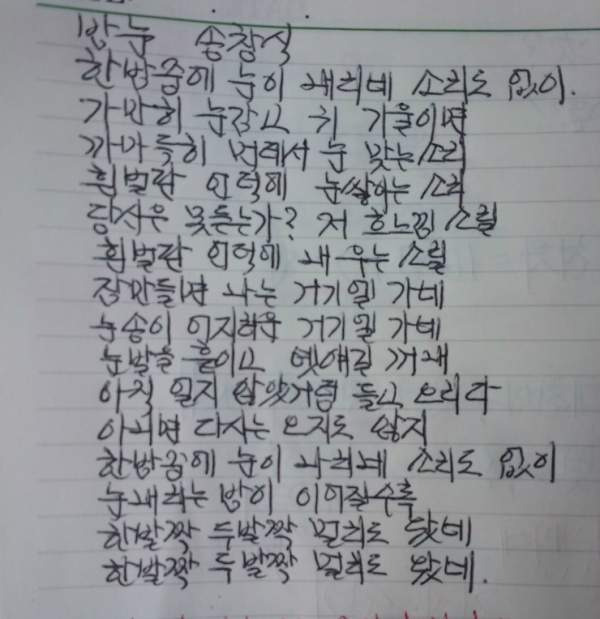 밤눈 송창식
한밤중에 눈이 내리네 소리도 없이.
가만히 눈감고 귀 기울이면
까마득히 멀리서 눈 맞는 소리
흰벌판 언덕에 눈쌓이는 소리
당신은 못듣는가? 저 흐느낌 소릴
흰벌판 언덕에 내 우는 소릴
잠만들면 나는 거기엘 가네
눈송이 어지러운 거기엘 가네
눈발을 흩이고 옛얘길 꺼내
아직 얼지 않았거덩 들고 오리라
아니면 다시는 오지도 않지
한밤중에 눈이 나리네 소리도 없이
눈내리는 밤이 이어질수록
한발짝 두발짝 멀리도 왔네
한발짝 두발짝 멀리도 왔네.